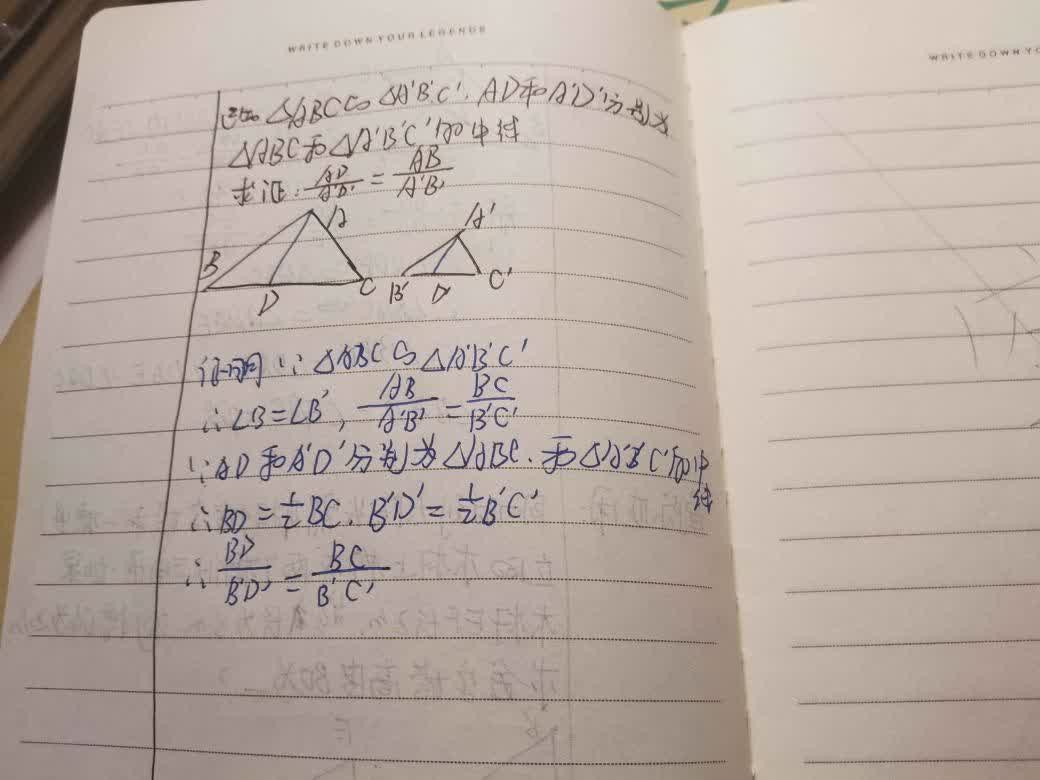 WRITE DOWN YOUR LEGENDS
WRITE DOWN YO
已知 △ABC∽△A'B'C', AD和A'D'分别为
△ABC和△A'B'C'的中线
求证: AD/A'D' = AB/A'B'
A
B
D
C
A'
B'
D'
C'
证明: ∵△ABC∽△A'B'C'
∴∠B=∠B', AB/A'B' = BC/B'C'
∵AD和A'D'分别为△ABC.和△A'B'C'的中线
∴BD=½BC, B'D'=½B'C'
∴ BD/B'D' = BC/B'C'